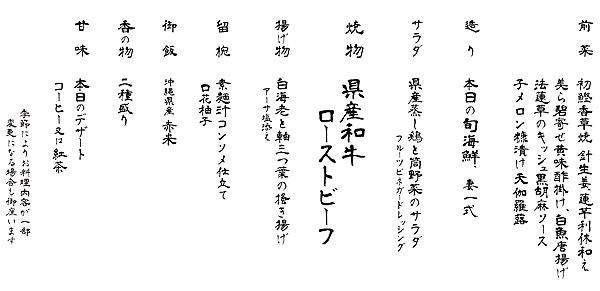 前菜
初鰹香草焼 針生姜、蓮芋利休和え
美ら碧寄せ黄味酢掛け、白魚唐揚げ
法蓮草のキッシュ黒胡麻ソース
子メロン糠漬け 天伽羅蕗
造り
本日の旬海鮮 妻一式
サラダ
県産蒸し鶏と筒野菜のサラダ
フルーツビネガードレッシング
焼物
県産和牛
ローストビーフ
揚げ物
白海老と軸三つ葉の掻き揚げ
アーサ塩添え
留椀
素麺汁コンソメ仕立て
口花柚子
御飯
沖縄県産 赤米
香の物
二種盛り
甘味
本日のデザート
コーヒー又は紅茶
季節によりお料理内容が一部
変更になる場合も御座います